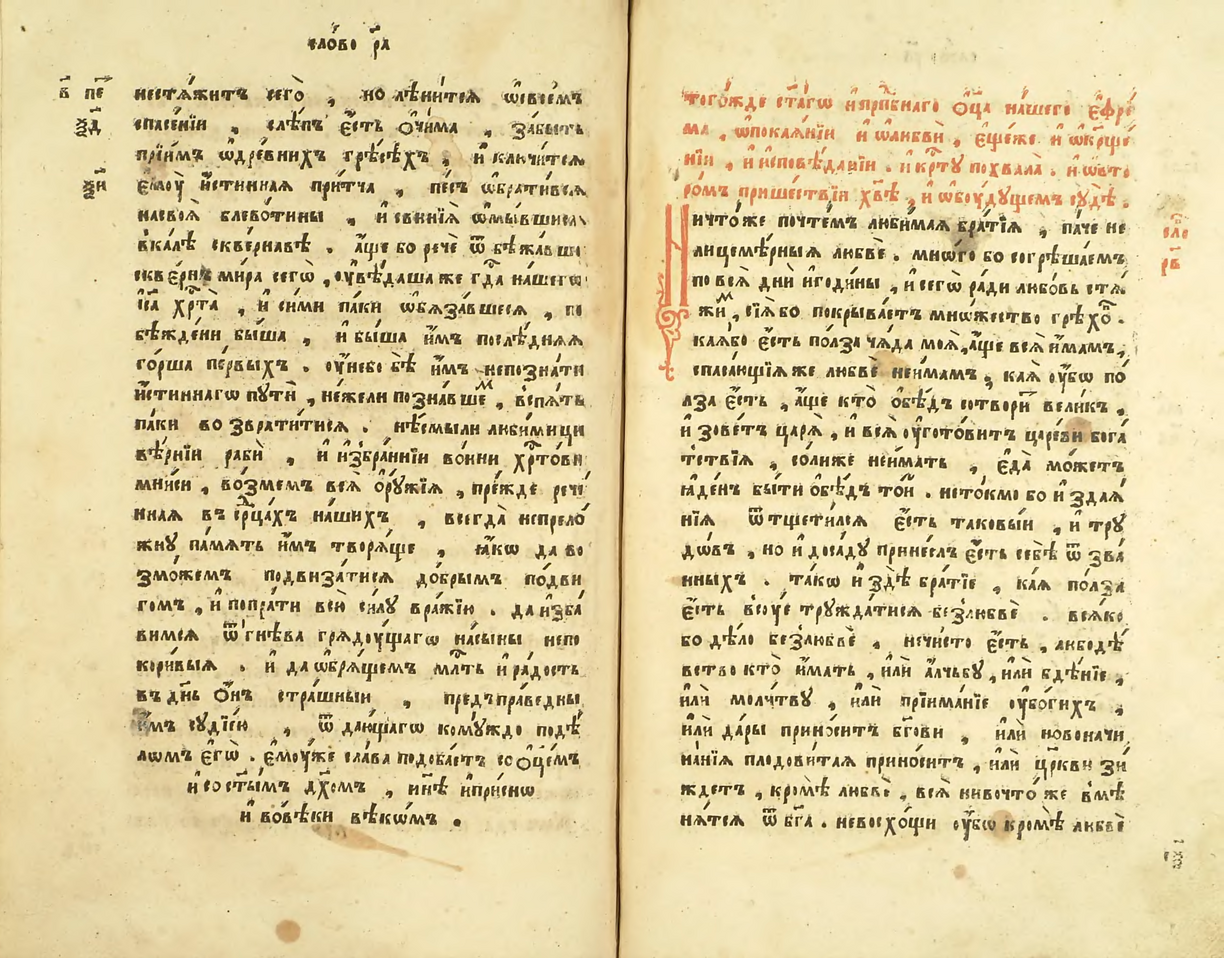 сло́во р҃а
в҃ пе
не стѧ́житъ сегѡ̀ , но лѣни́тсѧ ѡ҆ свое́мъ
спасе́нїи , слѣ́пъ є҆́сть ѻ҆чи́ма , забы́ть
прїи́мъ ѿ дре́внихъ грѣсѣ́хъ , и҆ ключи́тсѧ
є҆моу̀ и҆́стиннаѧ при́тча , пе́съ ѡ҆брати́всѧ
на своѧ̀ блево́тины , и҆ свинїѧ̀ ѡ҆мы́вшисѧ
в ка́лѣ сквернавѣ . а҆́ще бо речѐ ѿбѣжа́вши
скве́рнъ мира сегѡ̀ , оувѣ́даша же гд҇а на́шегѡ
і҆с҃а хр҇та̀ , и҆ си́ми па́ки ѡ҆бѧза́вшесѧ , по
бѣжде́ни бы́ша , и҆ бы́ша и҆̀мъ послѣ́днѧѧ
го́рша пе́рвыхъ . оу҆не бо бѣ̀ и҆̀мъ не позна́ти
и҆́стиннагѡ пꙋтѝ , не́жели позна́вше^м , вспѧ́ть
па́ки возврати́тисѧ . нѣ́смы ли люби́мици
вѣ́рнїи рабѝ , и҆ и҆збра́ннїи во́ини хр҇то́ви
мни́си , во́змемъ всѧ̀ ѻ҆рꙋ́жїѧ , пре́жде рече́
ннаѧ въ ср҃цахъ на́шихъ , всегда̀ непрело́
жнꙋ па́мѧть и҆̀мъ творѧ́ще , ꙗ҆́кѡ да во
змо́жемъ подвиза́тисѧ до́брымъ по́дви
гомъ , и҆ попра́ти всю̀ си́лꙋ вра́жїю . да и҆зба́
вимсѧ ѿ гнѣ́ва грѧдоу́щагѡ на сы́ны непо
кори́выѧ . и҆ да ѡ҆брѧ́щемъ мл҇ть и҆ ра́дость
въ дн҃ь ѻ҆́нъ стра́шныи , предъ пра́ведны
и҆́мъ сꙋдїе́ю , ѿ даю́щагѡ комꙋ́ждо по дѣ́
лѡмъ є҆гѡ̀ . є҆моу́же сла́ва подоба́етъ со ѻ҆ц҃е́мъ
и҆ со ст҃ы́мъ дх҃омъ , ны́нѣ и҆ при́снѡ
и҆ во вѣ́ки вѣкѡ́мъ .
тогѡ́жде ст҃а́гѡ и҆ прп҇бнаго ѻ҆ц҃а на́шего є҆фре́
ма , ѡ҆ покаѧ́нїи и҆ ѡ҆ любвѝ , є҆ще́же и҆ ѡ҆ кр҃ще́
нїи , и҆ и҆сповѣ́данїи . и҆ кр҇тꙋ̀ похвала̀ . и҆ ѡ҆ вто
ро́мъ пришествїи хв҃ѣ , и҆ ѡ҆ боу́дꙋщемъ сꙋдѣ̀ .
сло р҃в
Ничто́же почте́мъ люби́маѧ бра́тїѧ , па́че не
лицемѣ́рныѧ любвѐ . мнѡ́го бо согрѣша́емъ
по всѧ̀ дни̑ и҆ годи́ны , и҆ сегѡ̀ ра́ди любо́вь стѧ
жи^м , сїѧ́ бо покрыва́етъ мнѡ́жество грѣхо҇ .
каѧ́ бо є҆́сть по́лза чѧ́да моѧ̀ , а҆́ще всѧ̀ и҆́мамъ ,
спаса́ющїѧ же любвѐ не и҆мамъ , ка́ѧ оу҆́бѡ по́
лза є҆́сть , а҆́ще кто̀ ѻ҆бѣ́дъ сотвори́т вели́къ ,
и҆ зове́тъ царѧ̀ , и҆ всѧ̀ оу҆гото́витъ царе́ви бога́
тствїѧ , со́ли же не и҆мать , є҆да̀ мо́жетъ
ꙗ҆де́нъ бы́ти ѻ҆бѣ́дъ то́й . не то́кмо бо и҆ здаѧ́
нїѧ ѿтщети́лсѧ є҆́сть таковы́и , и҆ трꙋ
дѡ́въ , но и҆ доса́дꙋ прине́слъ є҆́сть себѣ̀ ѿ зва́
нныхъ . та́кѡ и҆ здѣ̀ бра́тїе , ка́ѧ по́лза
є҆́сть всоу́е трꙋжда́тисѧ без любвѐ . всѧ́ко
бо дѣ́ло без любвѐ , нечи́сто є҆́сть , а҆ще дѣ́
вство кто̀ и҆́мать , и҆лѝ а҆́лчьбꙋ , и҆лѝ бдѣ́нїе ,
и҆лѝ моли́твꙋ , и҆лѝ прїима́нїе оу҆бо́гихъ ,
и҆лѝ да́ры прино́ситъ бг҃ови , и҆лѝ новоначи
на́нїѧ плодови́таѧ прино́ситъ , и҆лѝ цр҃кви зи́
ждетъ , кро́мѣ любвѐ , всѧ̀ ни во что́ же вмѣ
нѧ́тсѧ ѿ бг҃а . не восхо́щи оу҆́бѡ кро́мѣ любвѐ